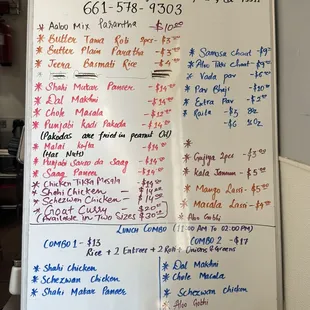 661-578-9303
* Aaloo Mix Parantha - $10.00
* Butter Tawa Roti 2pcs - $3.00
* Butter Plain Paratha - $3.00
* Jeera Basmati Rice - $4.00
* Shahi Matar Paneer - $14.00
* Dal Makhni - $14.00
* Chole Masala - $12.00
* Punjabi Kadi Pakoda - $14.00
(Pakodas are fried in peanut Oil)
* Malai kofta - $14.00
(Has Nuts)
* Punjabi Sarso da Saag
* Saag Paneer - $14.00
* Chicken Tikka Masala
* Shahi Chicken - $14.00
* Schezwan Chicken - $14.00
* Goat Curry - $20.00
(Available in Two Sizes $30.00
* Samosa chaat - $9
* Aloo Tikki chaat - $9
* Vada pav - $6
* Pav Bhaji - $10
* Extra Pav - $2
* Raita - $5 8oz
* Gajiya 2pcs - $3.00
* Kala Jamun - $5.00
* Mango Lassi - $5.00
* Masala Lassi - $9
* Aloo Gobhi
LUNCH COMBO (11:00 AM To 03:00 PM)
COMBO 1 - $13
COMBO 2 - $17
Rice + 2 Entrees + 2 Roti + Onions & Greens
* Shahi Chicken
* Schezwan Chicken
* Shahi Matar Paneer
* Dal Makhni
* Chole Masala
* Schezwan Chicken
* Aloo Gobhi